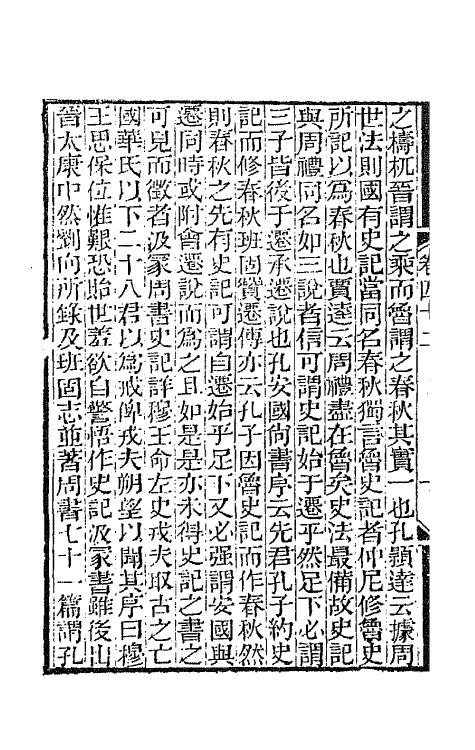 之檮杌晉謂之乘而魯謂之春秋其實一也孔穎達云據周
世法則國有史記當同名春秋獨言魯史記者仲尼修魯史
所記以爲春秋也賈逵云周禮盡在魯矣史法最備故史記
與周禮同名如三說者信可謂史記始于遷乎然足下必謂
三子皆後于遷承遷說也孔安國尙書序云先君孔子約史
記而修春秋班固贊遷傳亦云孔子因魯史記而作春秋然
則春秋之先有史記可謂自遷始乎足下又必强謂安國與
遷同時或附會遷說而爲之且如是是亦未得史記之書之
可見而徵者汲冢周書史記詳穆王命左史戎夫取古之亡
國華氏以下二十八君以爲戒俾戎夫朔望以聞其序曰穆
王思保位惟艱恐貽世羞欲自警悟作史記汲冢書雖後出
晉太康中然劉向所錄及班固志並著周書七十一篇謂孔
卷四十二